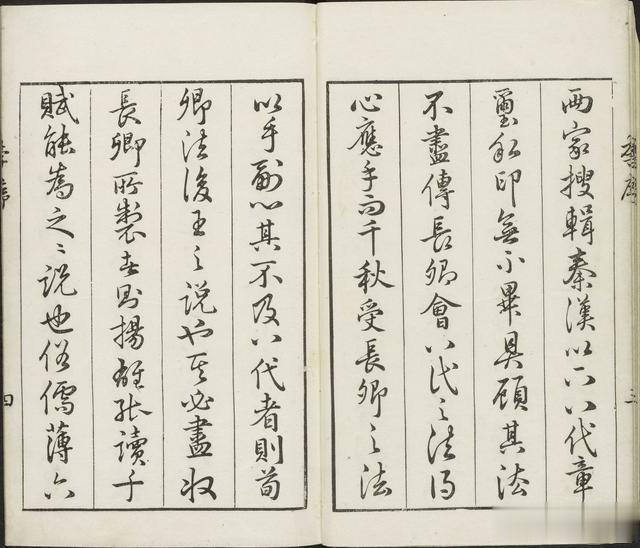 三
兩家搜輯秦漢以下八代章
璽私印無不畢具顧其法
不盡傳長卿會八代之法得
心應手而千秋受長卿之法
以手副心其不及八代者則荀
卿法後王之說也其必盡收
長卿所製則揚雄讀千
賦能為之〻說也俗儒薄六
四